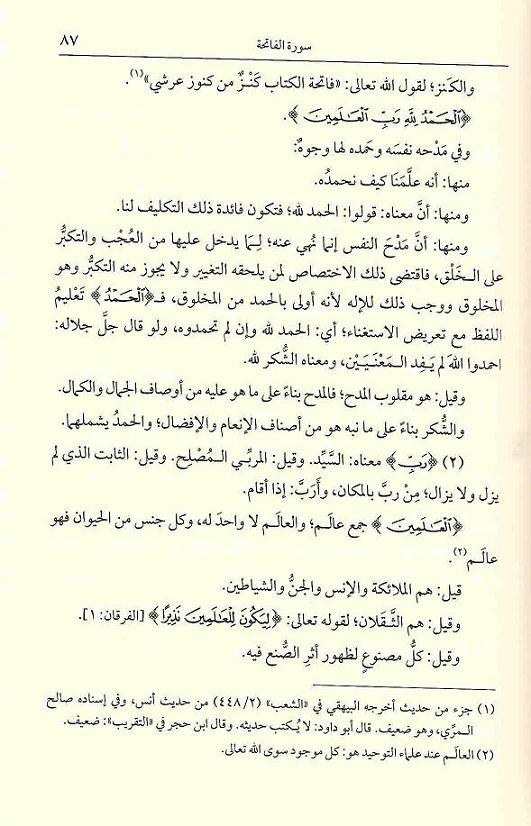 سورة الفاتحة
٨٧
والكَنز؛ لقول الله تعالى: «فاتحة الكتاب كَنْـزٌ من كنوز عرشي»(١).
﴿ٱلۡحَمۡدُ لِلَّهِ رَبِّ ٱلۡعَٰلَمِينَ﴾.
وفي مَدْحه نفسَه وحَمده لها وجوهٌ:
منها: أنه علَّمَنَا كيف نحمدُه.
ومنها: أنَّ معناه: قولوا: الحمد لله؛ فتكون فائدة ذلك التكليف لنا.
ومنها: أنَّ مَدْحَ النفس إنما نُهي عنه؛ لِـمَا يدخل عليها من العُجْب والتكبُّر
على الـخَلْق، فاقتضى ذلك الاختصاص لمن يلحقه التغيير ولا يجوز منه التكبُّر وهو
المخلوق ووجب ذلك للإله لأنه أولى بالحمد من المخلوق، فـ﴿ٱلۡحَمۡدُ﴾ تَعْليمُ
اللفظ مع تعريض الاستغناء؛ أي: الحمد لله وإن لم تحمدوه، ولو قال جلَّ جلاله:
احمدوا اللهَ لم يَـفِد الـمَعْنَيَـيْن، ومعناه الشُّكر لله.
وقيل: هو مقلوب المدح؛ فالمدح بناءً على ما هو عليه من أوصاف الجمال والكمال.
والشُّكر بناءً على ما نبه هو من أصناف الإنعام والإفضال؛ والحمدُ يشملهما.
(٢) ﴿رَبِّ﴾ معناه: السَّيِّد. وقيل: المربِّي الـمُصْلِح. وقيل: الثابت الذي لم
يزل ولا يزال؛ مِنْ ربَّ بالمكان، وأَرَبَّ: إذا أقام.
﴿ٱلۡعَٰلَمِينَ﴾ جمع عالَـم؛ والعالَـم لا واحدَ له، وكل جنس من الحيوان فهو
عالَـم(٢).
قيل: هم الملائكة والإنس والجنُّ والشياطين.
وقيل: هم الثَّـقَلان؛ لقوله تعالى: ﴿لِيَكُونَ لِلۡعَٰلَمِينَ نَذِيرًا﴾ [الفرقان: ١].
وقيل: كلُّ مصنوعٍ لظهور أثرِ الصُّنع فيه.
(١) جزء من حديث أخرجه البيهقي في «الشعب» (٢/ ٤٤٨) من حديث أنس، وفي إسناده صالح
الـمرِّي، وهو ضعيف. قال أبو داود: لا يُكتب حديثه. وقال ابن حجر في «التقريب»: ضعيف.
(٢) العالَـم عند علماء التوحيد هو: كل موجود سوى الله تعالى.